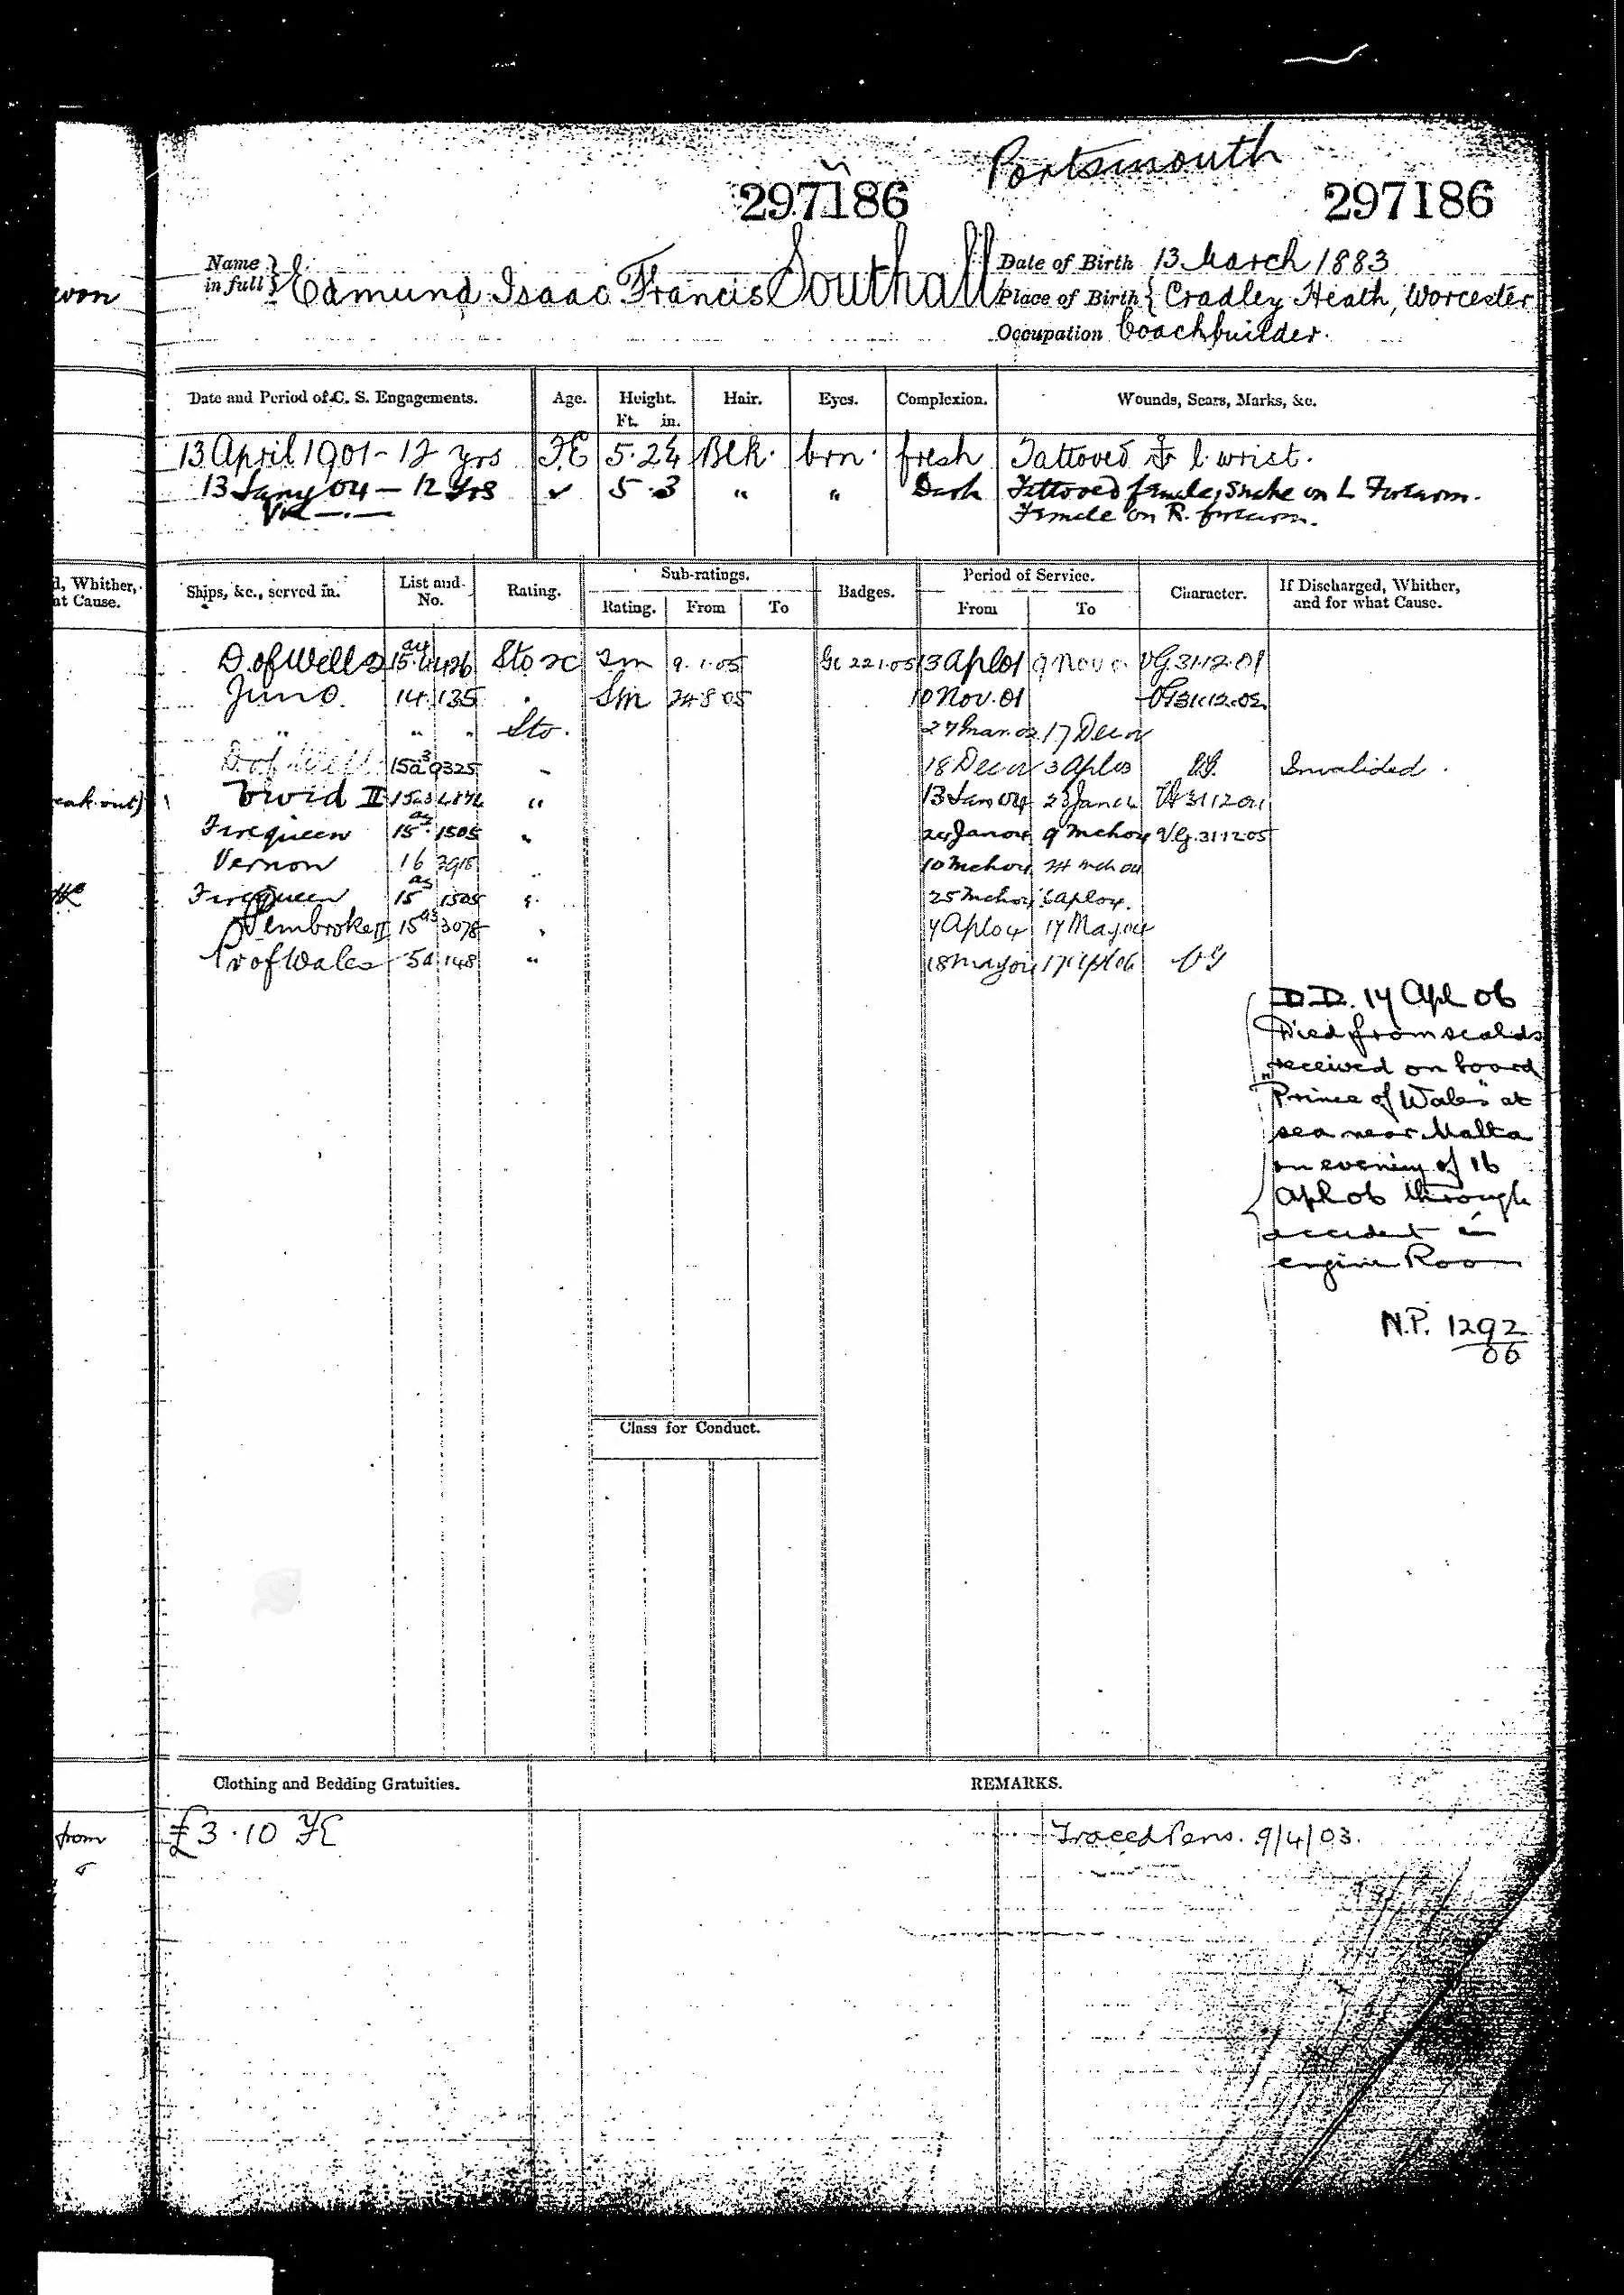 Portsmouth
297186
297186
Name in full
Edmund Isaac Francis Southall
Date of Birth 13 March 1883
Place of Birth Cradley Heath, Worcester
Occupation Coachbuilder.
won
Date and Period of C. S. Engagements. Age. Height. Ft. in. Hair. Eyes. Complexion. Wounds, Scars, Marks, &c.
13 April 1901 - 12 yrs 5. Blk. brn. fresh Tattoved l. wrist.
13 Jany 04 - 12 Yrs 5.3 " " Dark Tattooed female, Snake on L Forearm.
Female on R. forearm.
d, Whither, at Cause.
Ships, &c., served in. List and No. Rating. Sub-ratings. Rating. From To Badges. Period of Service. From To Character. If Discharged, Whither, and for what Cause.
D. of Well 2 Sto 2c Sm 9.1.05 13 Apl 01 9 Nov VG 31.12.01
Juno. 14 135 Sm 24 8 05 10 Nov. 01
" " " Sto. 17 Dec
D of Well 15a3 9325 18 Dec 3 Apl 03 VG. Invalided.
eak out)
II " 13 Jan 04 23 Jan VG 31 12 04
Firequeen 15 1505 " 24 Jan 04 9 Mch 04 V.G. 31.12.05
Vernon 16 10 Mch 04 24 Mch 04
Firequeen 15 1505 25 Mch 04 6 Apl 04.
Pembroke II 15 3078 7 Apl 04 17 May 04
Pr of Wales 5a 148 " 18 May 04 17 Apl 06 VG
D.D. 17 Apl 06
Died from scalds
received on board
"Prince of Wales" at
sea near Malta
on evening of 16
Apl 06 through
accident in
engine Room
N.P. 1292
06
Class for Conduct.
Clothing and Bedding Gratuities. REMARKS.
from
£3.10 Traced Pens. 9/4/03.